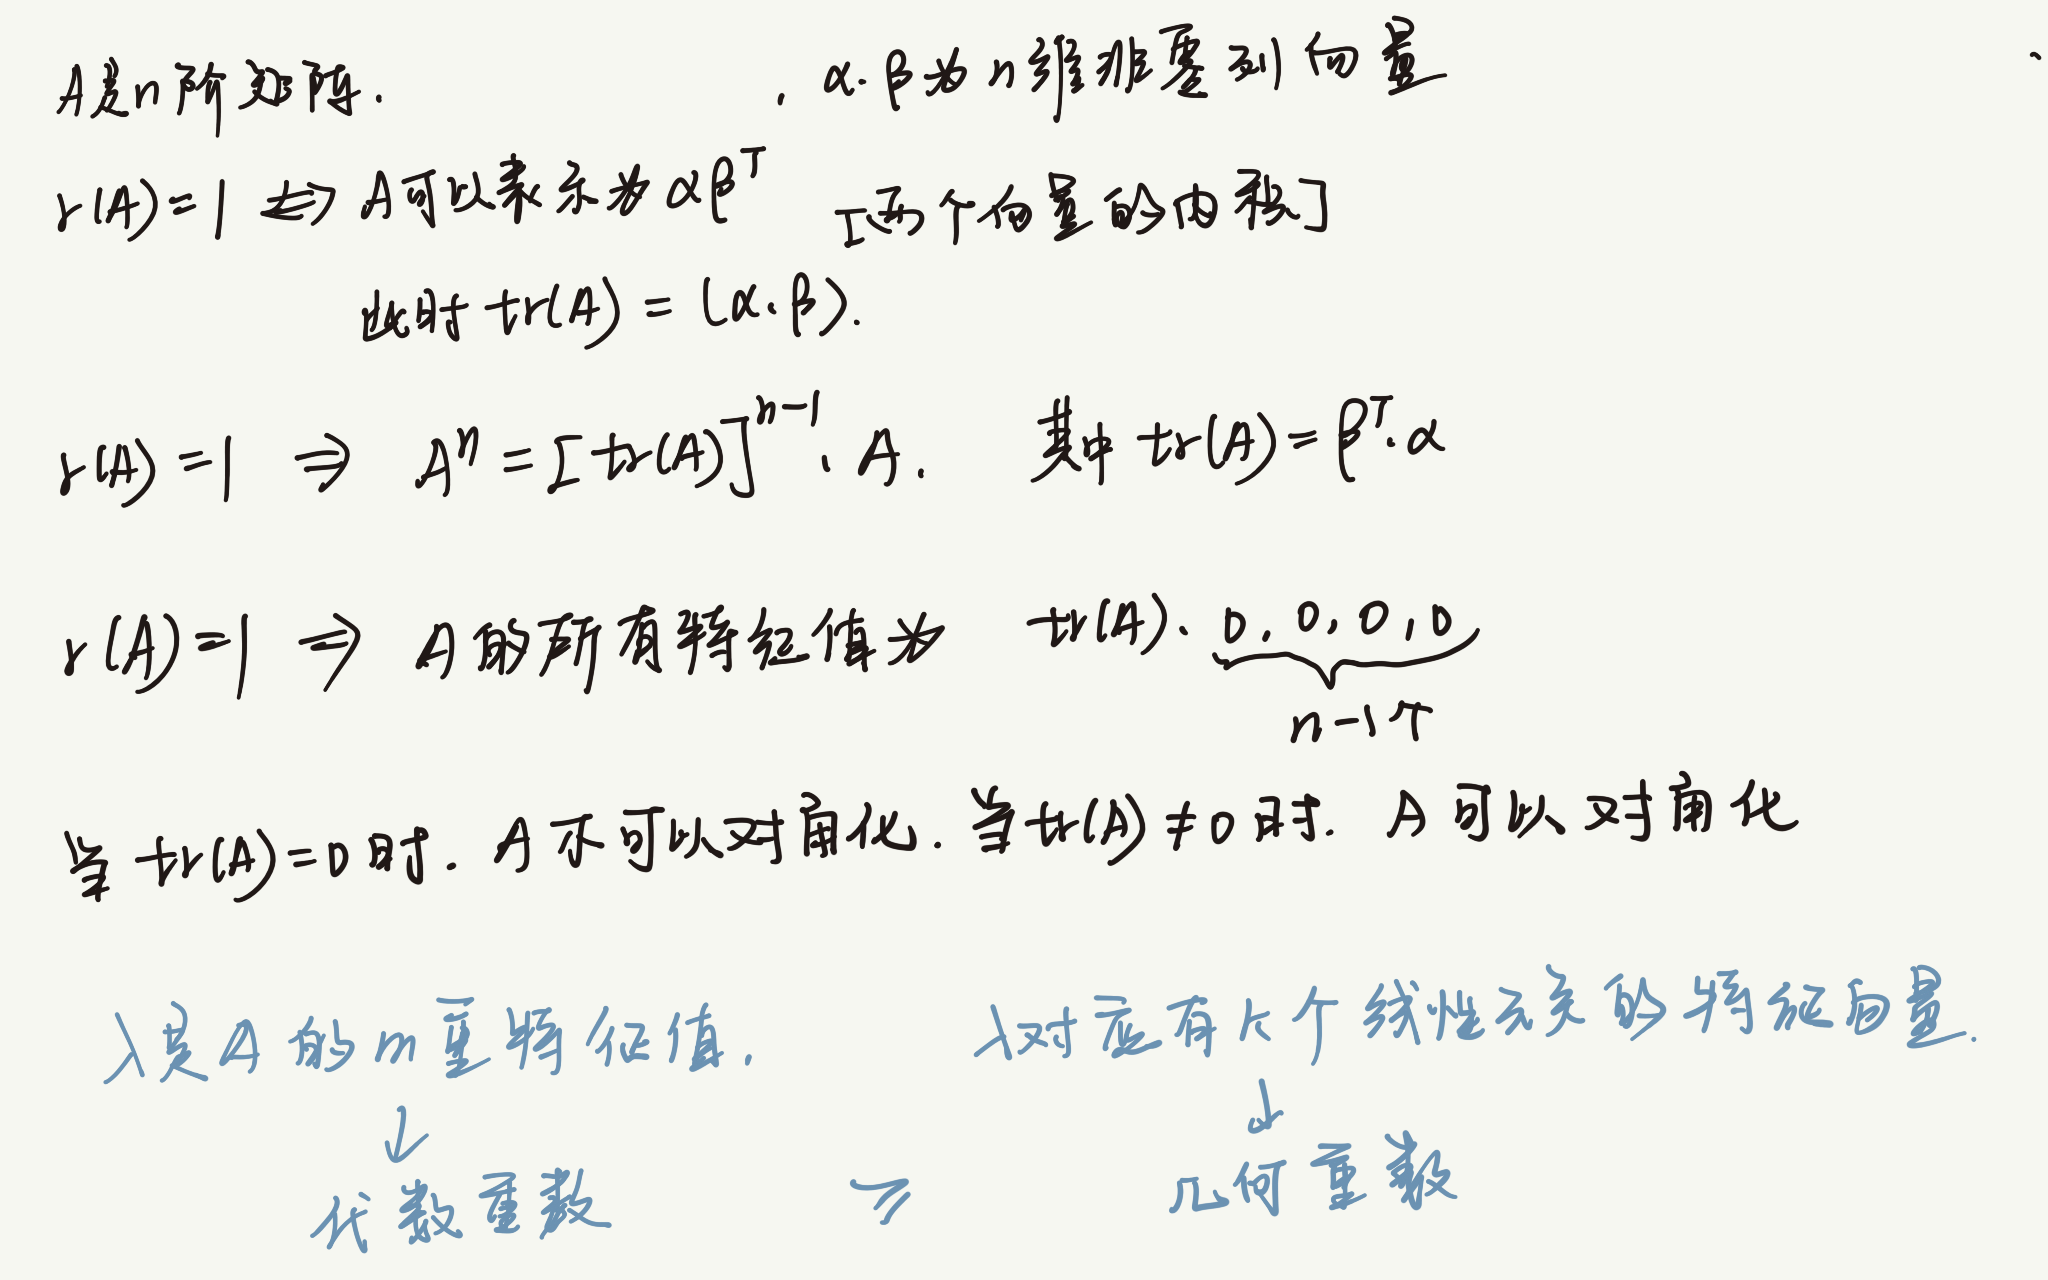 A是n阶矩阵. , α.β为n维非零列向量
r(A)=1 ⇔ A可以表示为αβᵀ [两个向量的内积]
此时 tr(A) = (α.β).
r(A)=1 ⇒ Aⁿ = [tr(A)]ⁿ⁻¹·A. 其中 tr(A)=βᵀ·α
r(A)=1 ⇒ A的所有特征值为 tr(A)、0,0,0,0
n-1个
当 tr(A)=0时. A不可以对角化. 当tr(A)≠0时. A可以对角化
λ是A的m重特征值. λ对应有k个线性无关的特征向量.
↓ ↓
代数重数 ≥ 几何重数